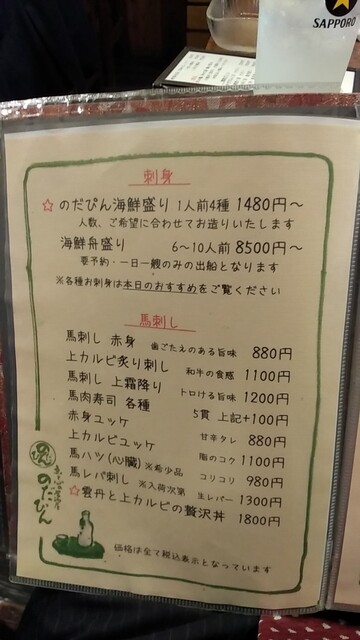 SAPPORO
刺身
☆ のだぴん海鮮盛り 1人前4種 1480円～
人数、ご希望に合わせてお造りいたします
海鮮舟盛り 6～10人前 8500円～
要予約・一日一艘のみの出船となります
※各種お刺身は本日のおすすめをご覧ください
馬刺し
馬刺し 赤身 歯ごたえのある旨味 880円
上カルビ炙り刺し 和牛の食感 1100円
馬刺し 上霜降り トロける旨味 1200円
馬肉寿司 各種 5貫 上記+100円
赤身ユッケ 甘辛タレ 880円
上カルビユッケ 脂のコク 1100円
馬ハツ(心臓) ※希少品 コリコリ 980円
馬レバ刺し ※入荷次第 生レバー 1300円
☆雲丹と上カルビの贅沢丼 1800円
のだぴん
価格は全て税込表示となっています